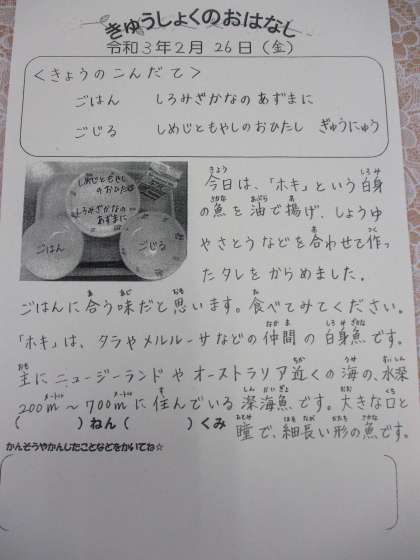 きゅうしょくのおはなし
令和3年2月26日(金)
<きょうのこんだて>
ごはん しろみざかなのあずまに
ごじる しめじともやしのおひたし ぎゅうにゅう
しめじともやしのおひたし
しろみざかなのあずまに
ごはん
ごじる
今日は、「ホキ」という白身
の魚を油で揚げ、しょうゆ
やさとうなどを合わせて作っ
たタレをからめました。
ごはんに合う味だと思います。食べてみてください。
「ホキ」は、タラやメルルーサなどの仲間の白身魚です。
主にニュージーランドやオーストラリア近くの海の、水深
200m~700mに住んでいる深海魚です。大きな口と
( )ねん( )くみ
瞳で、細長い形の魚です。
かんそうやかんじたことなどをかいてね☆